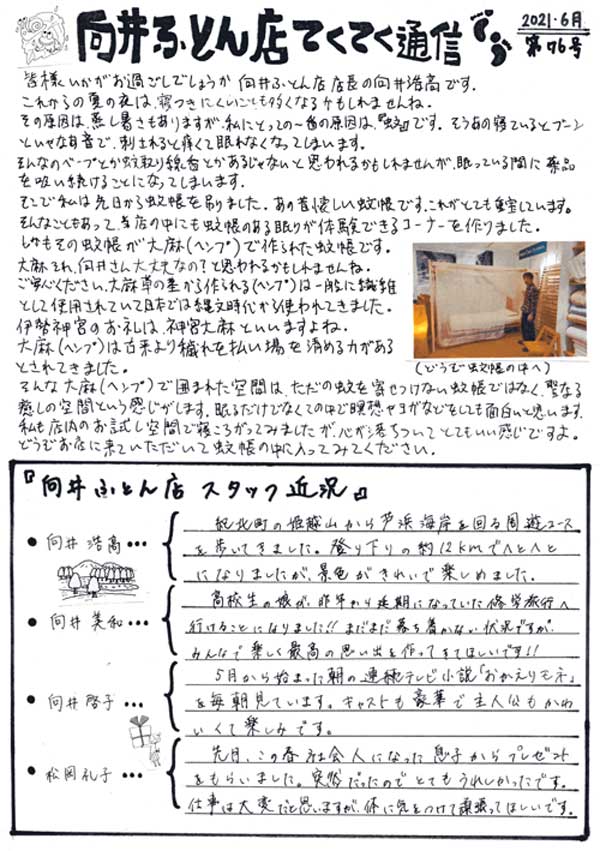 向井ふとん店てくてく通信
2021.6月
第76号
皆様いかがお過ごしでしょうか 向井ふとん店 店長の向井浩高です.
これからの夏の夜は、寝つきにくいことも多くなるかもしれませんね.
その原因は、蒸し暑さもありますが、私にとっての一番の原因は、『蚊』です. そうあの寝ているとプ〜ン
といやな羽音で、刺されると痒くて眠れなくなってしまいます.
そんなのベープとか蚊取り線香とかあるじゃないと思われるかもしれませんが、眠っている間に薬品
を吸い続けることになってしまいます.
そこで私は先日から蚊帳を吊りました. あの昔懐しい蚊帳です.これがとても重宝しています.
そんなこともあって、当店の中にも蚊帳のある眠りが体験できるコーナーを作りました.
しかもその蚊帳が大麻(ヘンプ)で作られた蚊帳です.
大麻それ、向井さん大丈夫なの?と思われるかもしれませんね.
ご安心ください、大麻草の茎から作られる(ヘンプ)は一般に繊維
として使用されていて日本では縄文時代から使われてきました.
伊勢神宮のお札は、神宮大麻といいますよね.
大麻(ヘンプ)は古来より穢れを払い場を清める力がある
とされてきました.
(どうぞ蚊帳の中へ)
そんな大麻(ヘンプ)で囲まれた空間は、ただの蚊を寄せつけない蚊帳ではなく、聖なる
癒しの空間という感じがします. 眠るだけでなくその中で瞑想やヨガなどをしても面白いと思います.
私も店内のお試し空間で寝ころがってみましたが、心が落ちついてとてもいい感じですよ.
どうぞお店に来ていただいて蚊帳の中に入ってみてください.
『向井ふとん店 スタッフ近況』
● 向井 浩高 •••
紀北町の姫越山から芦浜海岸を回る周遊コース
を歩いてきました。登り下りの約12kmでへとへと
になりましたが、景色がきれいで楽しめました.
● 向井 美和 •••
高校生の娘が、昨年から延期になっていた修学旅行へ
行けることになりました!! まだまだ落ち着かない状況ですが、
みんなで楽しく最高の思い出を作ってきてほしいです!!
● 向井 啓子 •••
5月から始まった朝の連続テレビ小説「おかえりモネ」
を毎朝見ています。キャストも豪華で主人公もかわ
いくて楽しみです。
● 松岡 礼子 •••
先月、この春社会人になった息子からプレゼント
をもらいました。突然だったのでとてもうれしかったです。
仕事は大変だと思いますが、体に気をつけて頑張ってほしいです。